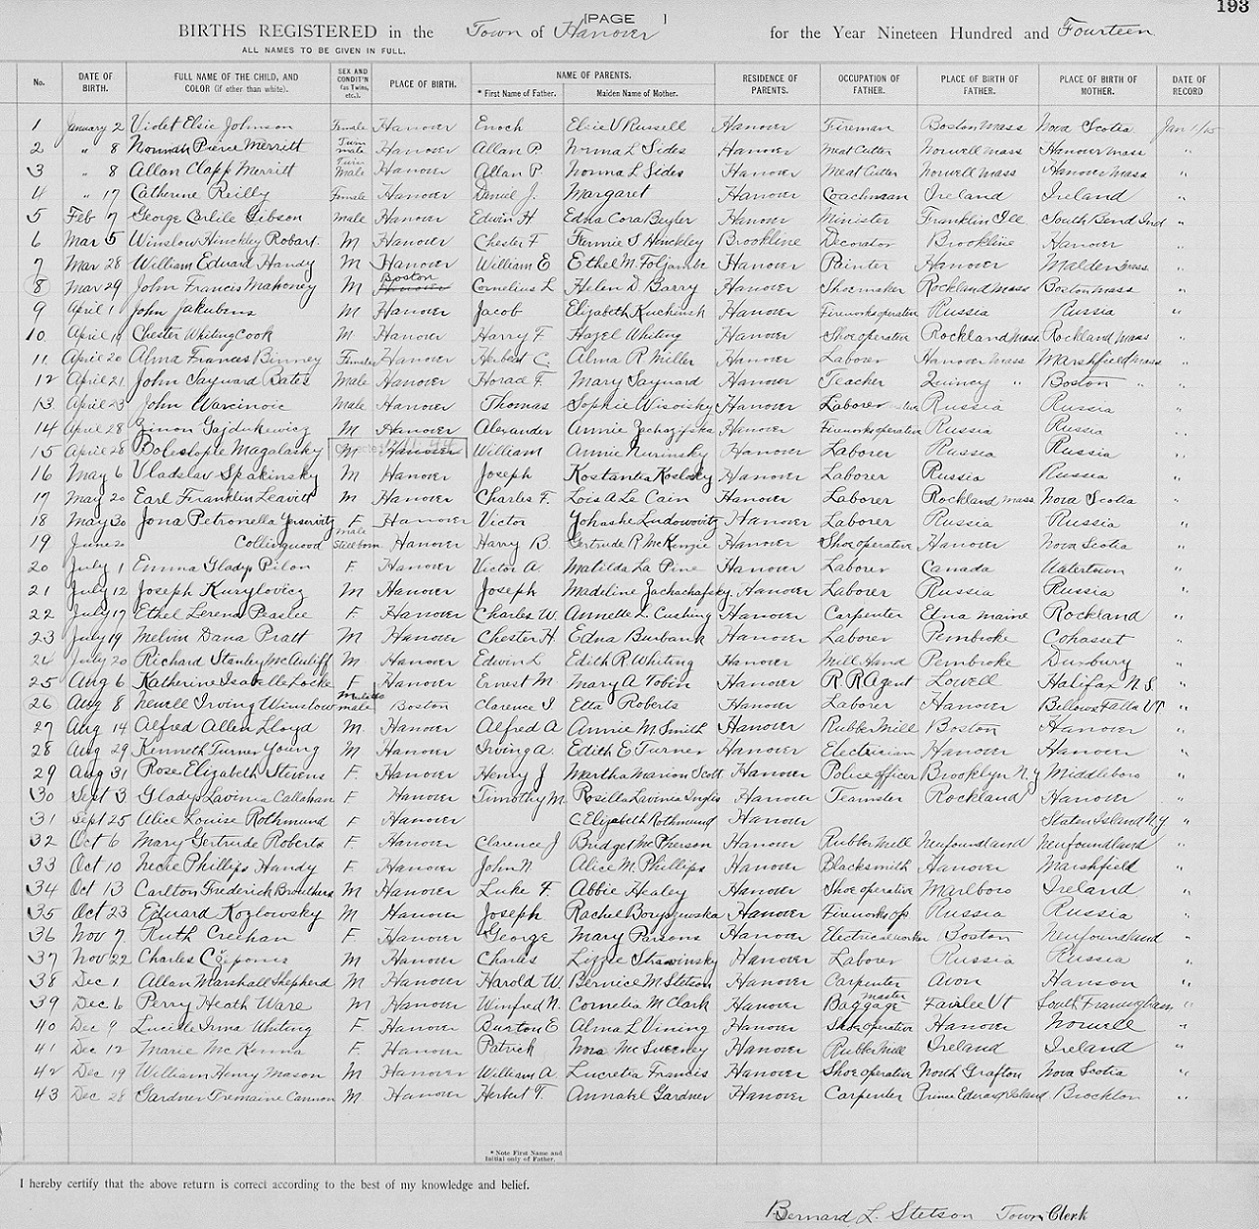 193
[PAGE ]
BIRTHS REGISTERED in the Town of Hanover for the Year Nineteen Hundred and Fourteen
ALL NAMES TO BE GIVEN IN FULL.
No. DATE OF BIRTH. FULL NAME OF THE CHILD, AND COLOR (if other than white). SEX AND CONDIT'N (as Twins, etc.). PLACE OF BIRTH. NAME OF PARENTS. * First Name of Father. Maiden Name of Mother. RESIDENCE OF PARENTS. OCCUPATION OF FATHER. PLACE OF BIRTH OF FATHER. PLACE OF BIRTH OF MOTHER. DATE OF RECORD
1 January 2 Violet Elsie Johnson Female Hanover Enoch Elsie V Russell Hanover Fireman Boston Mass Nova Scotia Jan 1/15
2 " 8 Norman Pierce Merritt Twin male Hanover Allan P Norma L Sides Hanover Meat Cutter Norwell Mass Hanover Mass "
3 " 8 Allan Clapp Merritt Twin Male Hanover Allan P. Norma L Sides Hanover Meat Cutter Norwell Mass Hanover Mass "
4 " 17 Catherine Reilly Female Hanover Daniel J. Margaret Hanover Coachman Ireland Ireland "
5 Feb 7 George Carlile Gibson Male Hanover Edwin H Edna Cora Beyler Hanover Minister Franklin Ill. South Bend Ind "
6 Mar 5 Winslow Hinckley Robart M Hanover Chester F Fannie S Hinckley Brookline Decorator Brookline Hanover "
7 Mar 28 William Edward Handy M Hanover William E Ethel M Foljambe Hanover Painter Hanover Malden Mass "
8 Mar 29 John Francis Mahoney M Boston Hanover Cornelius L Helen D. Barry Hanover Shoemaker Rockland Mass Boston Mass "
9 April 1 John Jakubens M Hanover Jacob Elizabeth Hanover Fireworks operative Russia Russia "
10 April 19 Chester Whiting Cook M Hanover Harry F. Hazel Whiting Hanover Shoe operative Rockland Mass Rockland Mass "
11 April 20 Alma Frances Binney Female Hanover Herbert C. Alma R Miller Hanover Laborer Hanover Mass Marshfield Mass "
12 April 21 John Saynard Bates Male Hanover Horace F. Mary Saynard Hanover Teacher Quincy " Boston " "
13 April 23 John Warcinoic Male Hanover Thomas Sophie Hanover Laborer Russia Russia "
14 April 28 Zinon Gajdukewicz M Hanover Alexander Annie Hanover Fireworks operative Russia Russia "
15 April 28 Magalasky M Hanover William Annie Hanover Laborer Russia Russia "
16 May 6 Vladslav Spakinsky M Hanover Joseph Kostantia Koslosky Hanover Laborer Russia Russia "
17 May 20 Earl Franklin Leavitt M Hanover Charles F. Lois A Le Cain Hanover Laborer Rockland Mass Nova Scotia "
18 May 30 Jona Petronella F Hanover Victor Ludowvity Hanover Laborer Russia Russia "
19 June 20 Collingwood male Stillborn Hanover Harry B. Gertrude R McKenzie Hanover Shoe operative Hanover Nova Scotia "
20 July 1 Emma Gladys Pilon F. Hanover Victor A. Matilda La Pine Hanover Laborer Canada Watertown "
21 July 12 Joseph Kurylovicz M Hanover Joseph Madeline Zachachafsky Hanover Laborer Russia Russia "
22 July 17 Ethel Lerena Peaslee F. Hanover Charles W. Annette L. Cushing Hanover Carpenter Etna Maine Rockland "
23 July 19 Melvin Dana Pratt M Hanover Chester H. Edna Burbank Hanover Laborer Pembroke Cohasset "
24 July 20 Richard Stanley McAuliff M. Hanover Edwin L Edith R Whiting Hanover Mill Hand Pembroke Duxbury "
25 Aug 6 Katherine Isabelle Locke F Hanover Ernest M. Mary A Tobin Hanover R R Agent Lowell Halifax N.S. "
26 Aug 8 Newell Irving Winslow Mulatto male Boston Clarence I Etta Roberts Hanover Laborer Hanover Bellows Falls VT "
27 Aug 14 Alfred Allen Lloyd M. Hanover Alfred A Annie M. Smith Hanover Rubber Mill Boston Hanover "
28 Aug 29 Kenneth Turner Young M Hanover Irving A. Edith E Turner Hanover Electrician Hanover Hanover "
29 Aug 31 Rose Elizabeth Stevens F. Hanover Henry J Martha Marion Scott Hanover Police officer Brooklyn N.Y Middleboro "
30 Sept 3 Gladys Lavinia Callahan F Hanover Timothy M. Rosilla Lavinia Inglis Hanover Teamster Rockland Hanover "
31 Sept 25 Alice Louise Rothmund F Hanover C Elizabeth Rothmund Hanover Staten Island N.Y "
32 Oct 6 Mary Gertrude Roberts F. Hanover Clarence J Bridget McPherson Hanover Rubber Mill Newfoundland Newfoundland "
33 Oct 10 Phillips Handy F Hanover John N Alice M. Phillips Hanover Blacksmith Hanover Marshfield "
34 Oct 13 Carlton Frederick Brouthers M Hanover Luke F. Abbie Healey Hanover Shoe operative Marlboro Ireland "
35 Oct 23 Edward Kozlowsky M Hanover Joseph Rachel Hanover Fireworks op Russia Russia "
36 Nov 7 Ruth Creehan F. Hanover George Mary Parsons Hanover Electrical worker Boston Newfoundland "
37 Nov 22 Charles M Hanover Charles Lizzie Shawinsky Hanover Laborer Russia Russia "
38 Dec 1 Allan Marshall Shepherd M Hanover Harold W. Bernice M Stetson Hanover Carpenter Avon Hanson "
39 Dec 6 Perry Heath Ware M Hanover Winfred N. Cornelia M Clark Hanover Baggage master Fairlee Vt South Framingham "
40 Dec 9 Lucille Irma Whiting F Hanover Burton E Alma L Vining Hanover Shoe operative Hanover Norwell "
41 Dec 12 Marie McKenna F. Hanover Patrick Nora McSweeney Hanover Rubber Mill Ireland Ireland "
42 Dec 19 William Henry Mason M Hanover William A. Lucretia Francis Hanover Shoe operative North Grafton Nova Scotia "
43 Dec 28 Gardner Tremaine Cannon M Hanover Herbert T. Annabel Gardner Hanover Carpenter Prince Edward Island Brockton "
* Note First Name and Initial only of Father.
I hereby certify that the above return is correct according to the best of my knowledge and belief.
Bernard L. Stetson Town Clerk